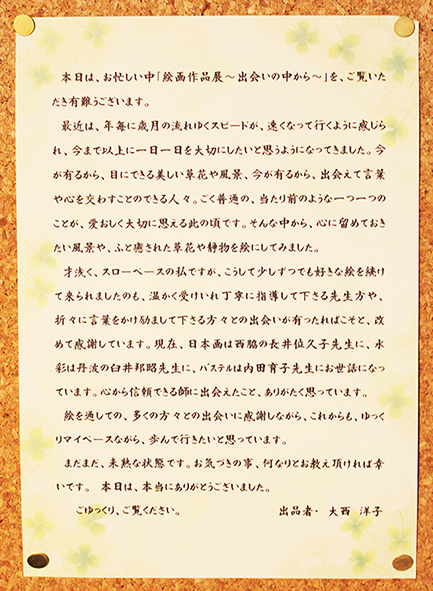 本日は、お忙しい中「絵画作品展～出会いの中から～」を、ご覧いた
だき有難うございます。
最近は、年毎に歳月の流れゆくスピードが、速くなって行くように感じら
れ、今まで以上に一日一日を大切にしたいと思うようになってきました。今
が有るから、目にできる美しい草花や風景、今が有るから、出会えて言葉
や心を交わすことのできる人々。ごく普通の、当たり前のような一つ一つの
ことが、愛おしく大切に思える此の頃です。そんな中から、心に留めておき
たい風景や、ふと癒された草花や静物を絵にしてみました。
才浅く、スローペースの私ですが、こうして少しずつでも好きな絵を続け
て来られましたのも、温かく受けいれ丁寧に指導して下さる先生方や、
折々に言葉をかけ励まして下さる方々との出会いが有ったればこそと、改
めて感謝しています。現在、日本画は西脇の長井位久子先生に、水
彩は丹波の臼井邦昭先生に、パステルは内田育子先生にお世話になっ
ています。心から信頼できる師に出会えたこと、ありがたく思っています。
絵を通しての、多くの方々との出会いに感謝しながら、これからも、ゆっく
りマイペースながら、歩んで行きたいと思っています。
まだまだ、未熟な状態です。お気づきの事、何なりとお教え頂ければ幸
いです。 本日は、本当にありがとうございました。
ごゆっくり、ご覧ください。 出品者・ 大西 洋子